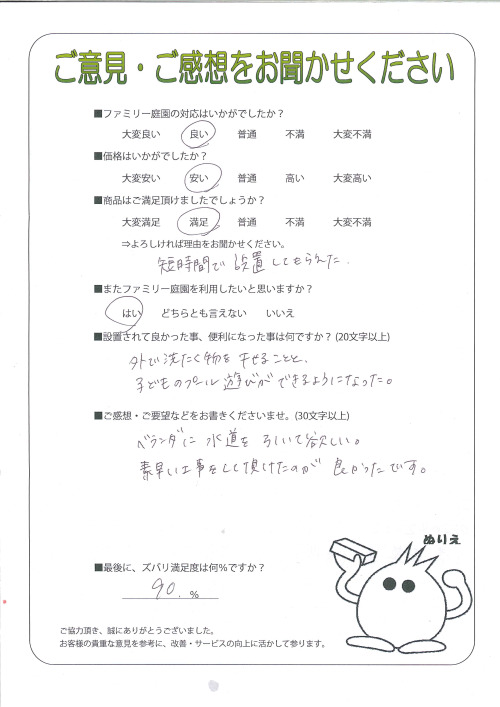 ご意見・ご感想をお聞かせください
■ファミリー庭園の対応はいかがでしたか？
大変良い 良い 普通 不満 大変不満
■価格はいかがでしたか？
大変安い 安い 普通 高い 大変高い
■商品はご満足頂けましたでしょうか？
大変満足 満足 普通 不満 大変不満
⇒よろしければ理由をお聞かせください。
短時間で設置してもらえた.
■またファミリー庭園を利用したいと思いますか？
はい どちらとも言えない いいえ
■設置されて良かった事、便利になった事は何ですか？(20文字以上)
外で洗たく物を干せることと、
子どものプール遊びができるようになった。
■ご感想・ご要望などをお書きくださいませ。(30文字以上)
ベランダに水道を引いて欲しい。
素早い工事をして頂けたのが良かったです。
ぬりえ
■最後に、ズバリ満足度は何％ですか？
90. %
ご協力頂き、誠にありがとうございました。
お客様の貴重な意見を参考に、改善・サービスの向上に活かして参ります。